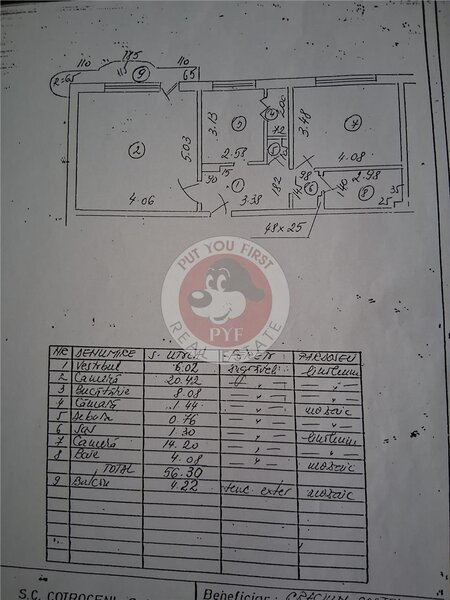 110 185 110
R=65 115 9 65
2 5.03 4.06
3.13 3 2.58
4 2.00 72 5
3.48 7 4.08
90 15 1 3.38 182
98 145 6 140 2.98 8 35 25
48×25
PUT YOU FIRST
PYF
REAL ESTATE
NR DENUMIRE S. UTILĂ PARDOSELI
1 Vestibul 6.02 zugrăveli
2 Cameră 20.42 〃 〃
3 Bucătărie 8.08 〃 〃
4 Cămară 1.44 〃 mozaic
5 Debara 0.76 〃 〃
6 Sas 1.30 〃 〃
7 Cameră 14.20 〃
8 Baie 4.08 〃 mozaic
TOTAL 56.30
9 Balcon 4.22 tenc. exter mozaic
S.C. COTROCENI Beneficiar: